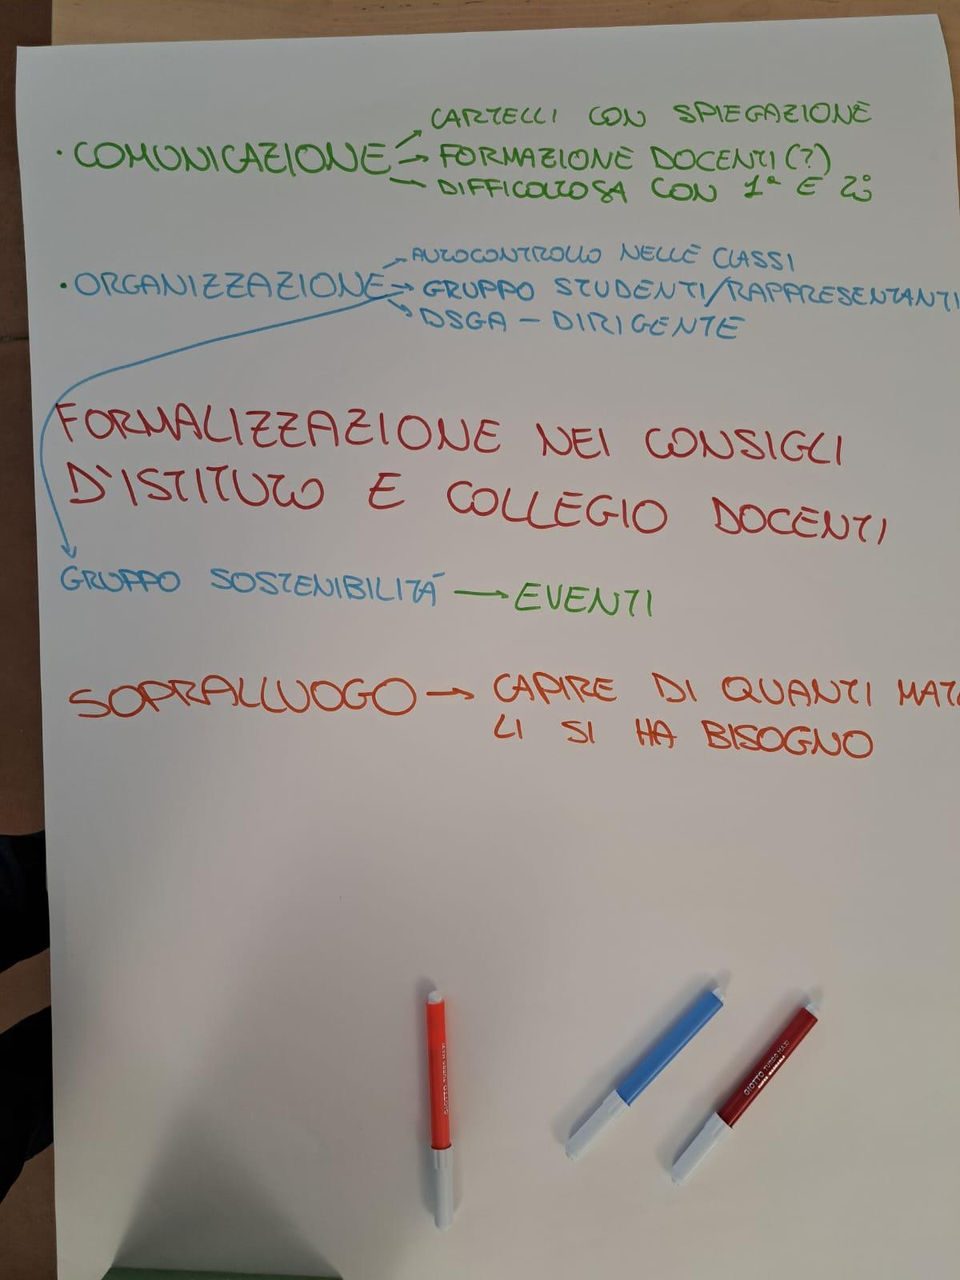 CARTELLI CON SPIEGAZIONE
· COMUNICAZIONE → FORMAZIONE DOCENTI (?)
DIFFICOLTOSA CON 1ª E 2ª
AUTOCONTROLLO NELLE CLASSI
· ORGANIZZAZIONE → GRUPPO STUDENTI/RAPPRESENTANTI
DSGA - DIRIGENTE
FORMALIZZAZIONE NEI CONSIGLI
D'ISTITUTO E COLLEGIO DOCENTI
GRUPPO SOSTENIBILITÁ → EVENTI
SOPRALLUOGO → CAPIRE DI QUANTI MATE
LI SI HA BISOGNO
GIOTTO TURBO MAXI
GIOTTO TURBO MAXI